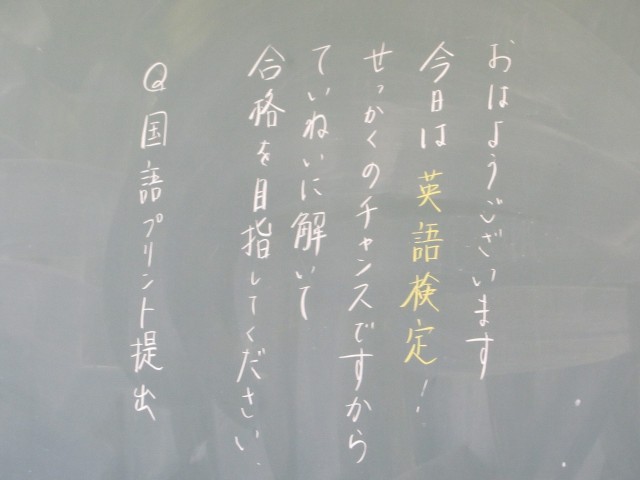 おはようございます
今日は英語検定!
せっかくのチャンスですから
ていねいに解いて
合格を目指してください.
@国語プリント提出